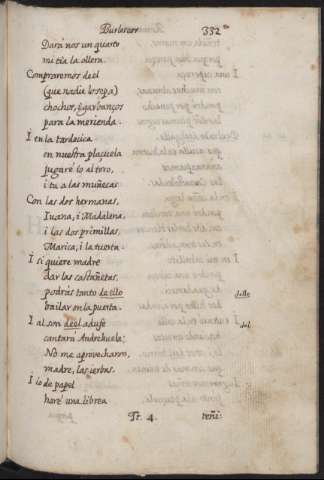 Burlescos 332
Dará nos un quarto
mi tia la ollera.
Compraremos de el
(que nadie lo sepa)
chochos, i garbanços
para la merienda.
I en la tardecica
en nuestra plaçuela
jugaré Io al toro,
i tu a las muñecas
Con las dos hermanas,
Iuana, i Madalena,
i las dos primillas,
Marica, i la tuerta.
I si quiere madre
dar las castañetas,
podrás tanto dello dello
bailar en la puerta.
I al son del adufe del
cantara Andrehuela;
No me aprovecharon,
madre, las ierbas.
I io de papel
haré una librea
Tt. 4. teñi: